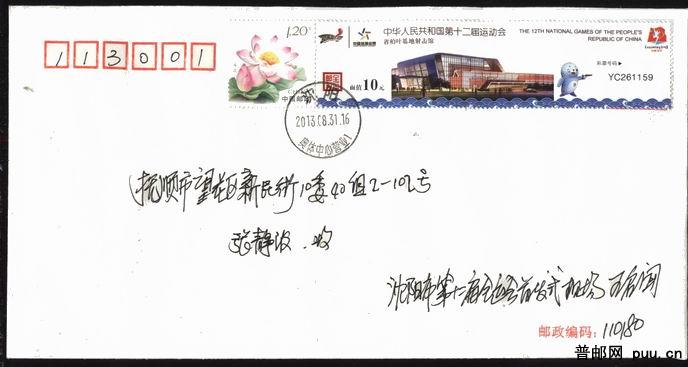 1.20元
中国邮政
中华人民共和国第十二届运动会
省柏叶基地射击馆
THE 12TH NATIONAL GAMES OF THE PEOPLE'S
REPUBLIC OF CHINA
彩票号码
YC261159
面值 10元
113001
沈阳
2013.08.31.16
奥体中心营业1
抚顺市望花区新民街10委40组2-102号
张静波 收
沈阳市第十二届全运会首发式现场
邮政编码: 110180
普邮网 puu.cn